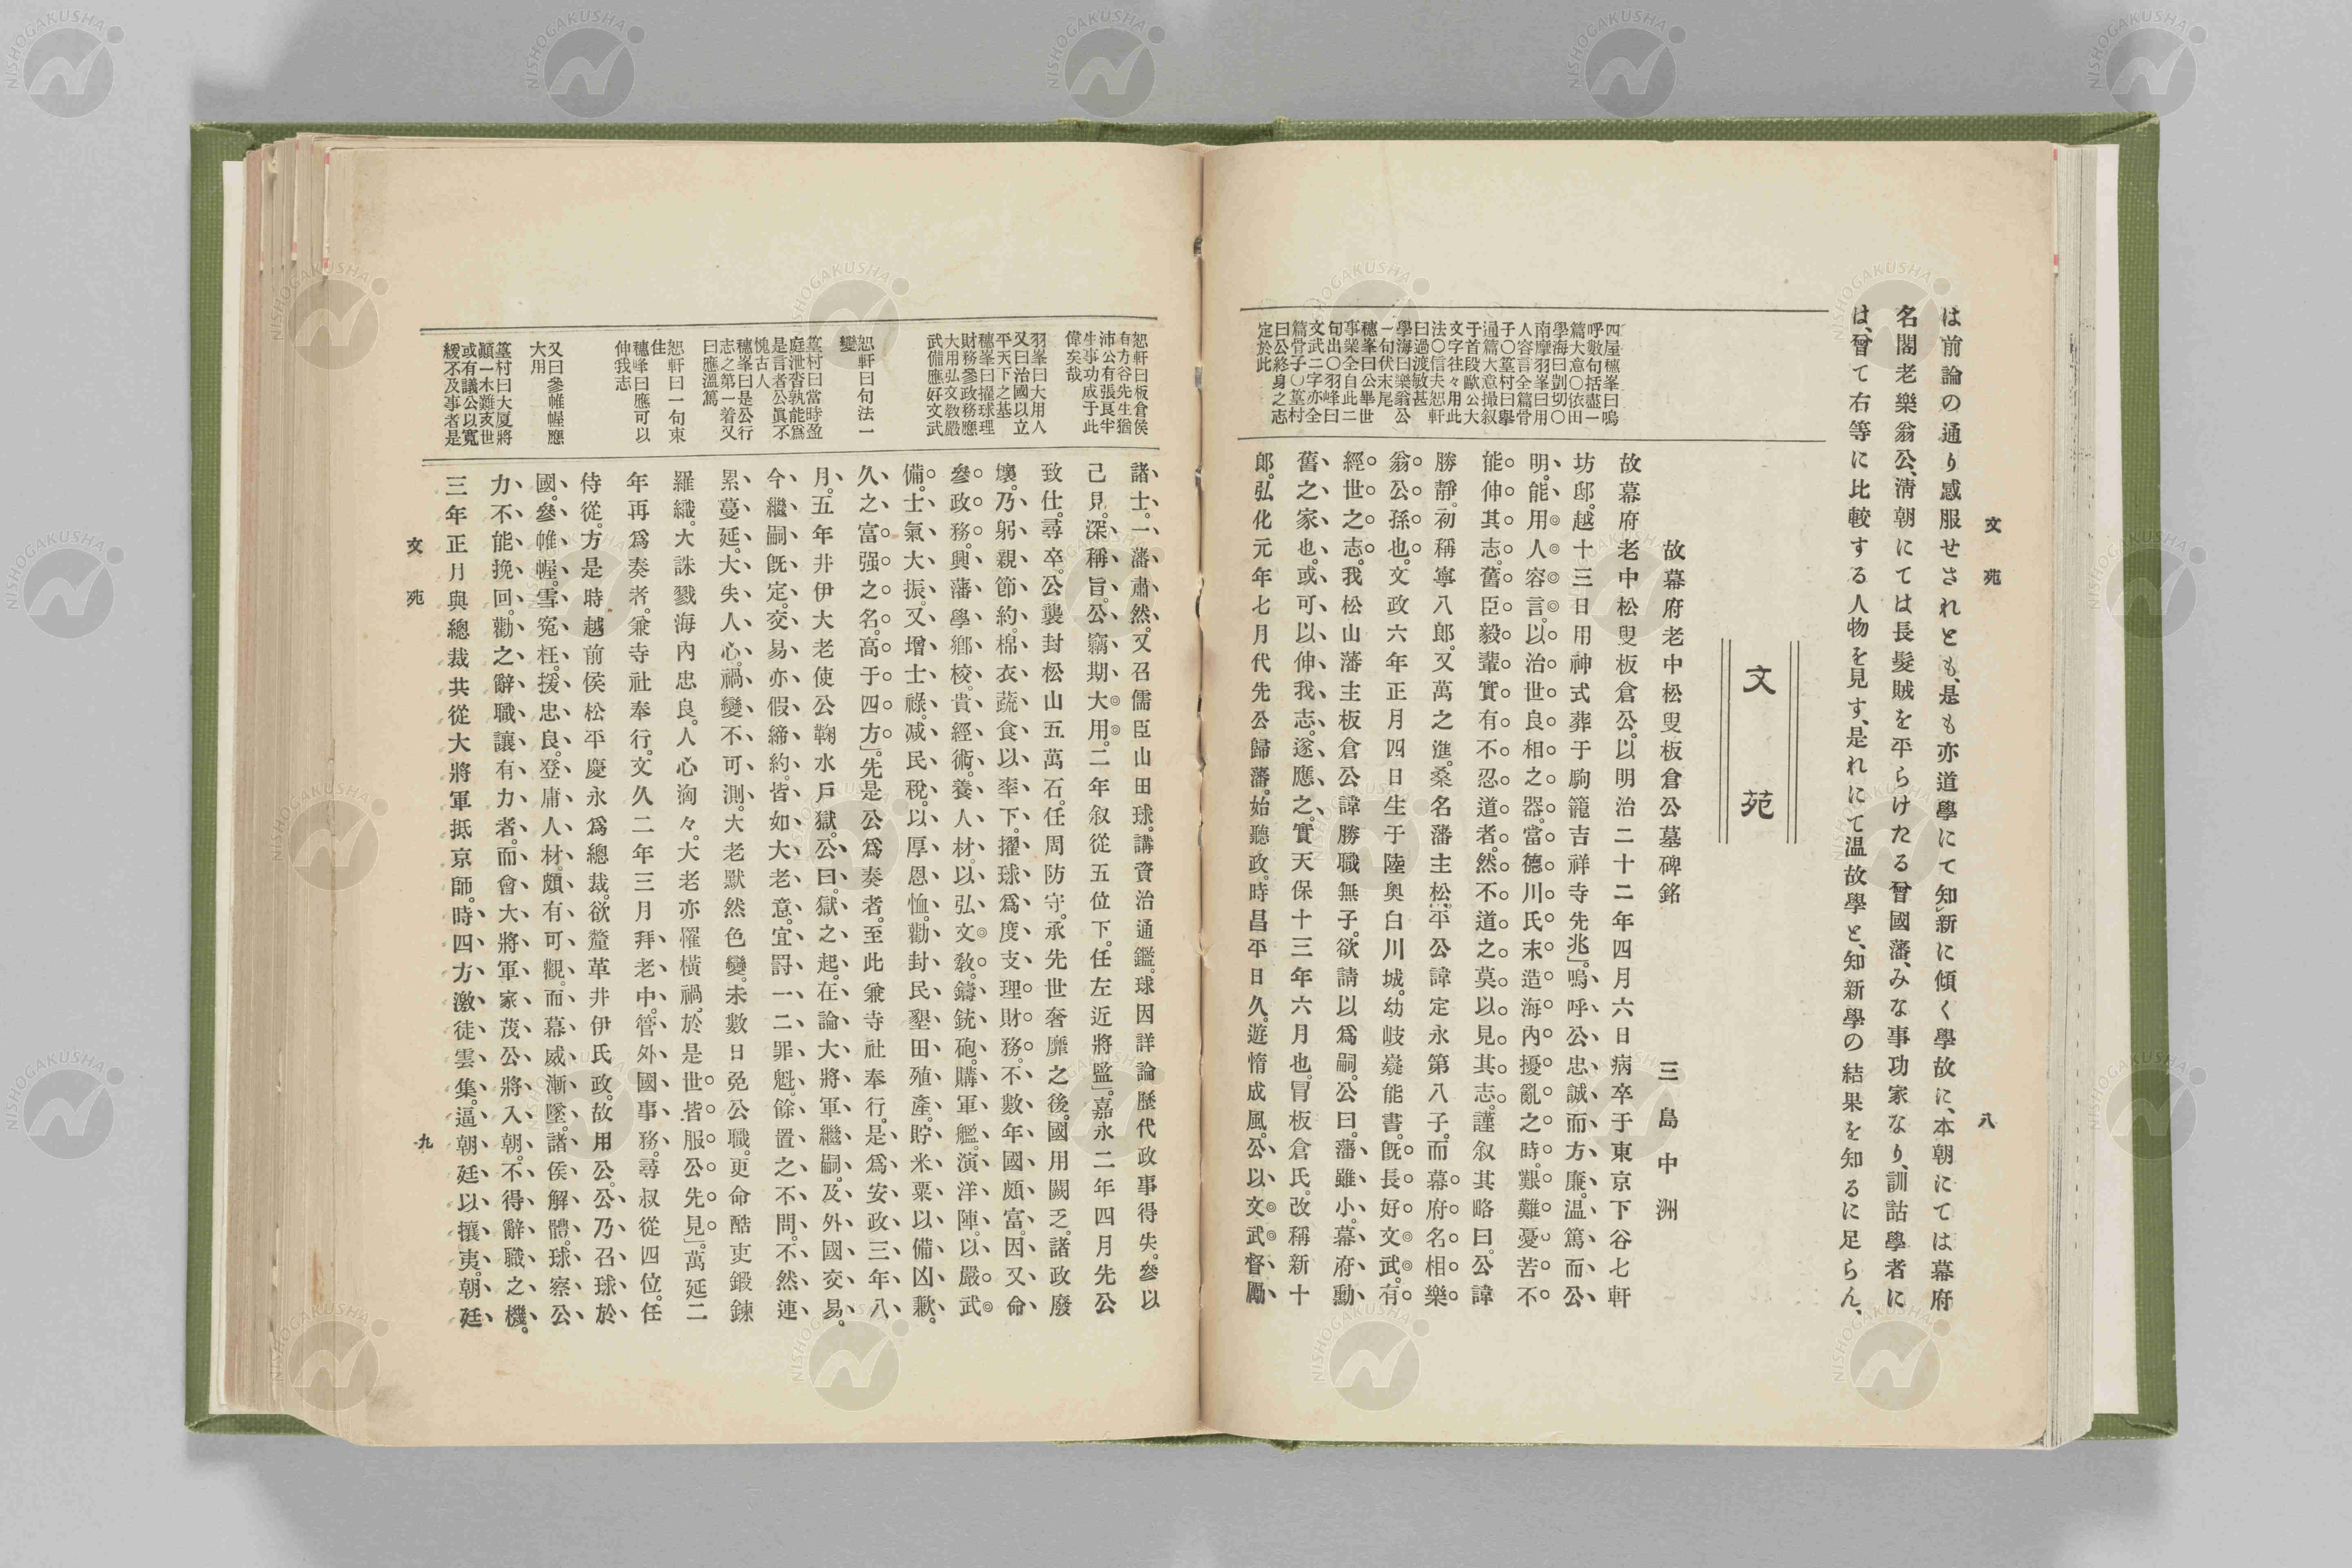 文苑
八
は前論の通り感服せされとも、是も亦道學にて知新に傾く學故に、本朝にては幕府
名閣老樂翁公、淸朝にては長髮賊を平らけたる曾國藩、みな事功家なり、訓詁學者に
は、曾て右等に比較する人物を見す、是れにて温故學と、知新學の結果を知るに足らん、
文苑
故幕府老中松叟板倉公墓碑銘
三島中洲
故幕府老中松叟板倉公。以明治二十二年四月六日病卒于東京下谷七軒
坊邸。越十三日用神式葬于駒籠吉祥寺先兆」。嗚呼公、忠誠而方廉。温篤而公
明。能用人容言。以治世良相之器。當德川氏末造海內擾亂之時。艱難憂苦不
能伸其志。舊臣毅輩實有不忍道者。然不道之。莫以見其志。謹叙其略曰。公諱
勝靜。初稱寧八郎。又萬之進。桑名藩主松平公諱定永第八子。而幕府名相樂
翁公孫也。文政六年正月四日生于陸奧白川城。幼岐嶷能書。旣長好文武。有
經世之志。我松山藩主板倉公諱勝職無子。欲請以爲嗣。公曰。藩雖小。幕府勳
舊之家也。或可以伸我志。遂應之。實天保十三年六月也。冒板倉氏。改稱新十
郎。弘化元年七月代先公歸藩。始聽政。時昌平日久。遊惰成風。公以文武督勵
四屋穗峯曰嗚
呼數句括盡一
篇大意〇依田
學海曰剴切〇
南摩羽峯曰用
人容言全篇骨
子〇篁村曰擧
通篇大意撮叙
于首段歐公大
文字往々用此
法〇信夫恕軒
曰過渡敏甚
學海曰樂翁公
一句伏末尾
穗峯曰公畢世
事業全自此二
句出〇羽峰曰
文武二字亦全
篇骨子〇篁村
曰公終身之志
定於此
諸士。一藩肅然。又召儒臣山田球。講資治通鑑。球因詳論歷代政事得失。參以
己見。深稱旨。公竊期大用。二年叙從五位下。任左近將監」。嘉永二年四月先公
致仕。尋卒。公襲封松山五萬石。任周防守。承先世奢靡之後。國用闕乏。諸政廢
壞。乃躬親節約。棉衣蔬食以率下。擢球爲度支理財務。不數年國頗富。因又命
參政務。興藩學鄕校。貴經術。養人材。以弘文敎。鑄銃砲。購軍艦。演洋陣。以嚴武
備。士氣大振。又增士祿。减民稅。以厚恩恤。勸封民墾田殖產。貯米粟以備凶歉。
久之富强之名。高于四方」。先是公爲奏者。至此兼寺社奉行。是爲安政三年八
月。五年井伊大老使公鞠水戶獄。公曰。獄之起。在論大將軍繼嗣。及外國交易。
今繼嗣旣定。交易亦假締約。皆如大老意。宜罸一二罪魁。餘置之不問。不然連
累蔓延。大失人心。禍變不可測。大老默然色變。未數日免公職。更命酷吏鍛鍊
羅織。大誅戮海內忠良。人心洶々。大老亦罹橫禍。於是世皆服公先見」。萬延二
年再爲奏者。兼寺社奉行。文久二年三月拜老中。管外國事務。尋叔從四位。任
侍從。方是時越前侯松平慶永爲總裁。欲釐革井伊氏政。故用公。公乃召球於
國。參帷幄。雪寃枉。援忠良。登庸人材。頗有可觀。而幕威漸墜。諸侯解體。球察公
力不能挽回。勸之辭職讓有力者。而會大將軍家茂公將入朝。不得辭職之機。
三年正月與總裁共從大將軍抵京師。時四方激徒雲集。逼朝廷以攘夷。朝廷
恕軒曰板倉侯
有方谷先生猶
沛公有張良半
生事功成于此
偉矣哉
羽峯曰大用人
又曰治國以立
平天下之基
穗峯曰擢球理
財務參政務應
大用弘文敎嚴
武備應好文武
恕軒曰句法一
變
篁村曰當時盈
庭泄沓孰能爲
是言者公眞不
愧古人
穗峯曰是公行
志之第一着又
曰應溫篤
恕軒曰一句束
住
穗峰曰應可以
伸我志
又曰參帷幄應
大用
篁村曰大厦將
顚一木難支世
或有議公以寬
緩不及事者是
文苑
九